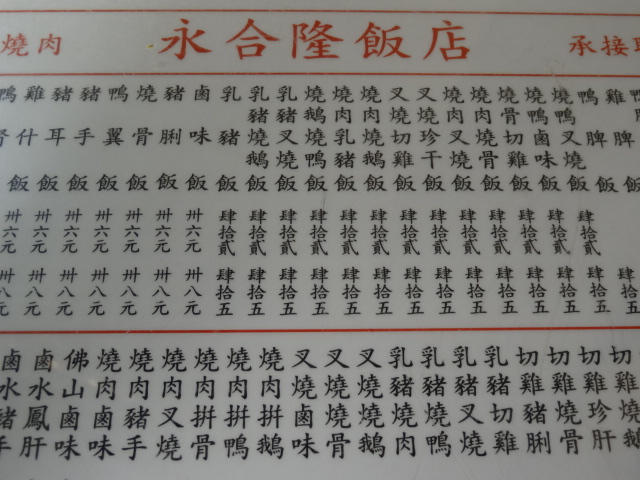 燒肉
永合隆飯店
承接
雞脾飯
鴨脾飯
燒鴨叉燒飯
燒鴨鹵味飯
燒骨切雞飯
燒肉燒骨飯
燒肉叉燒飯
叉燒珍干飯
叉燒切雞飯
燒肉燒鵝飯
燒肉乳豬飯
燒鵝燒鴨飯
乳豬叉燒飯
乳豬燒鵝飯
乳豬飯
鹵味飯
豬脷飯
燒骨飯
鴨翼飯
豬手飯
豬耳飯
雞什飯
鴨腎飯
肆拾貳
肆拾貳
肆拾貳
肆拾貳
肆拾貳
肆拾貳
肆拾貳
肆拾貳
肆拾貳
肆拾貳
肆拾貳
肆拾貳
肆拾貳
卅六元
卅六元
卅六元
卅六元
卅六元
卅六元
卅六元
肆拾五
肆拾五
肆拾五
肆拾五
肆拾五
肆拾五
肆拾五
肆拾五
肆拾五
肆拾五
肆拾五
肆拾五
肆拾五
肆拾五
卅八元
卅八元
卅八元
卅八元
卅八元
卅八元
卅八元
切雞燒鵝
切雞珍肝
切雞燒骨
切雞豬脷
乳豬切雞
乳豬叉燒
乳豬燒鴨
乳豬燒肉
叉燒燒鵝
叉燒燒骨
叉燒鹵味
燒肉拼鵝
燒肉拼鴨
燒肉拼骨
燒肉叉燒
燒肉豬手
燒肉鹵味
佛山鹵味
鹵水鳳肝
鹵水豬手